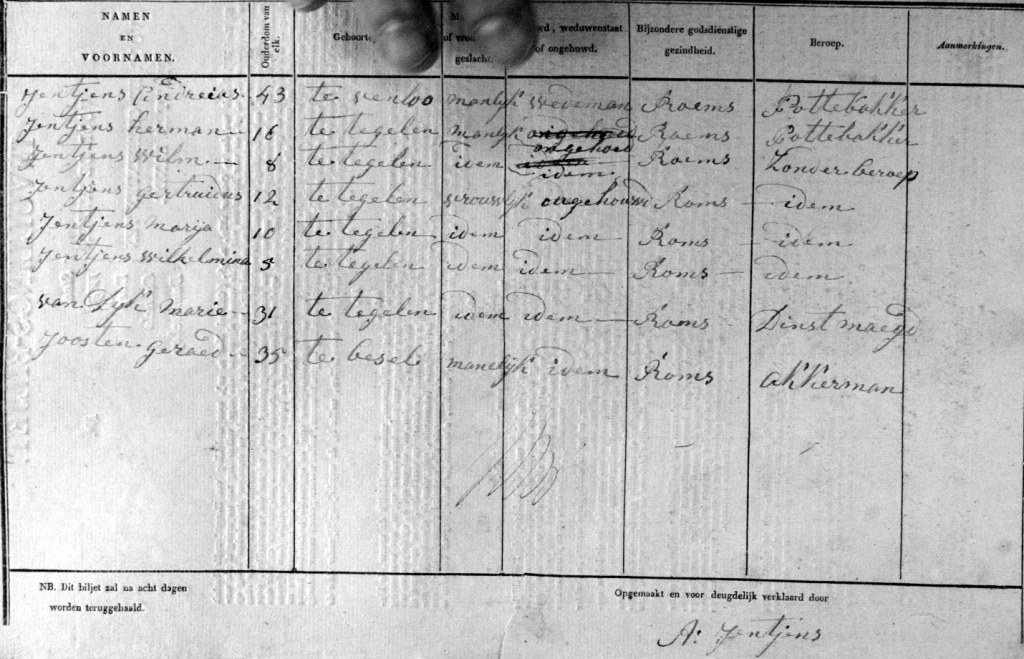 NAMEN EN VOORNAMEN. Ouderdom van elk. Geboorte M of vrou geslacht. wd, weduwenstaat of ongehuwd. Bijzondere godsdienstige gezindheid. Beroep. Aanmerkingen.
Jentjens Andreius 43 te venloo manlyk wedeman Roems Pottebakker
Jentjens herman 16 te tegelen manlyk ongehoed Roems Pottebakker
Jentjens Wilm — 8 te tegelen idem idem Roems Zonder beroep
Jentjens gertruidus 12 te tegelen vrouwlyk ongehouwd Roms — idem
Jentjens Marija 10 te tegelen idem idem Roms — idem
Jentjens Wilhelmina 5 te tegelen idem idem — Roms — idem
van Dyk Marie — 31 te tegelen idem idem — Roms Dinst maegd
Joosten geraed — 35 te besel manelyk idem Roms akkerman
NB. Dit biljet zal na acht dagen
worden teruggehaald.
Opgemaakt en voor deugdelijk verklaard door
A: Jentjens